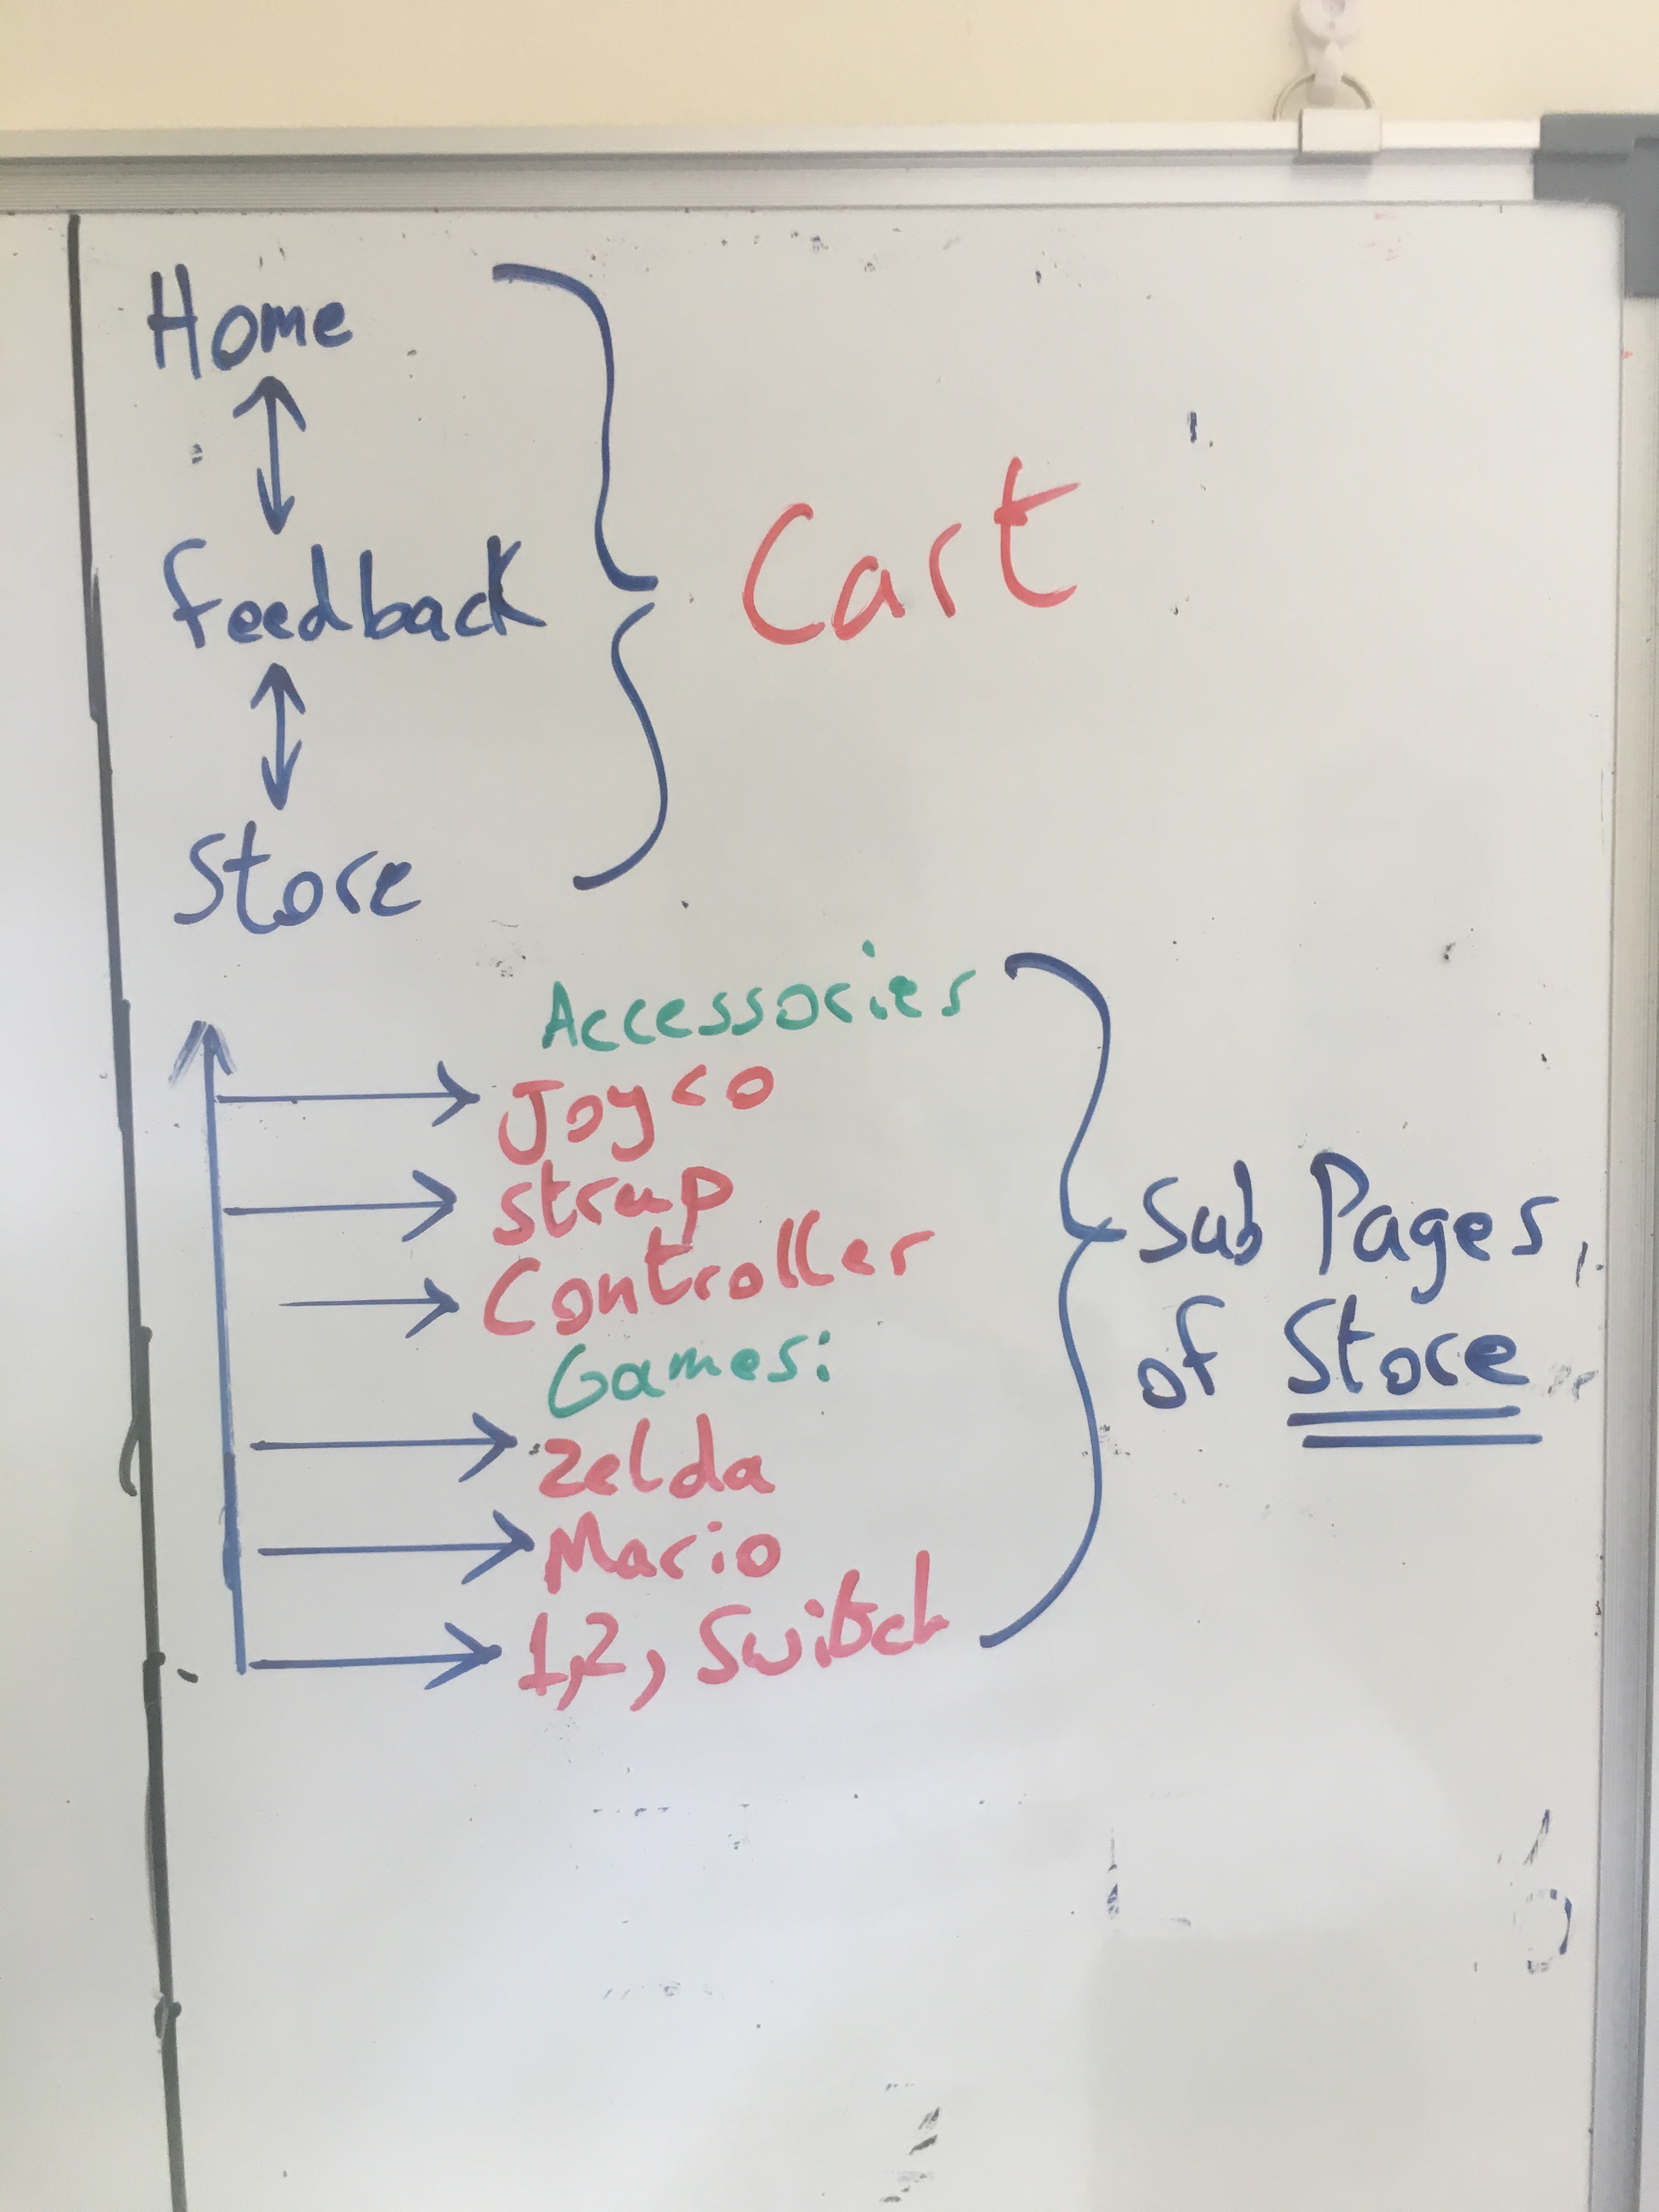 Home
feedback
Cart
Store
Accessories
Joyco
strap
Controller
Games:
Zelda
Mario
1,2, Switch
Sub Pages
of Store